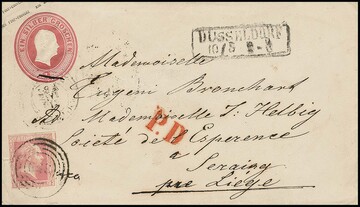 EIN SILBER GROSCHEN
DÜSSELDORF
10 5
Mademoiselle
Eugeni Bronchart
Ad. Mademoiselle J: Helbig
P.D
Société de l'Esperence
a
Seraing
pre Liége